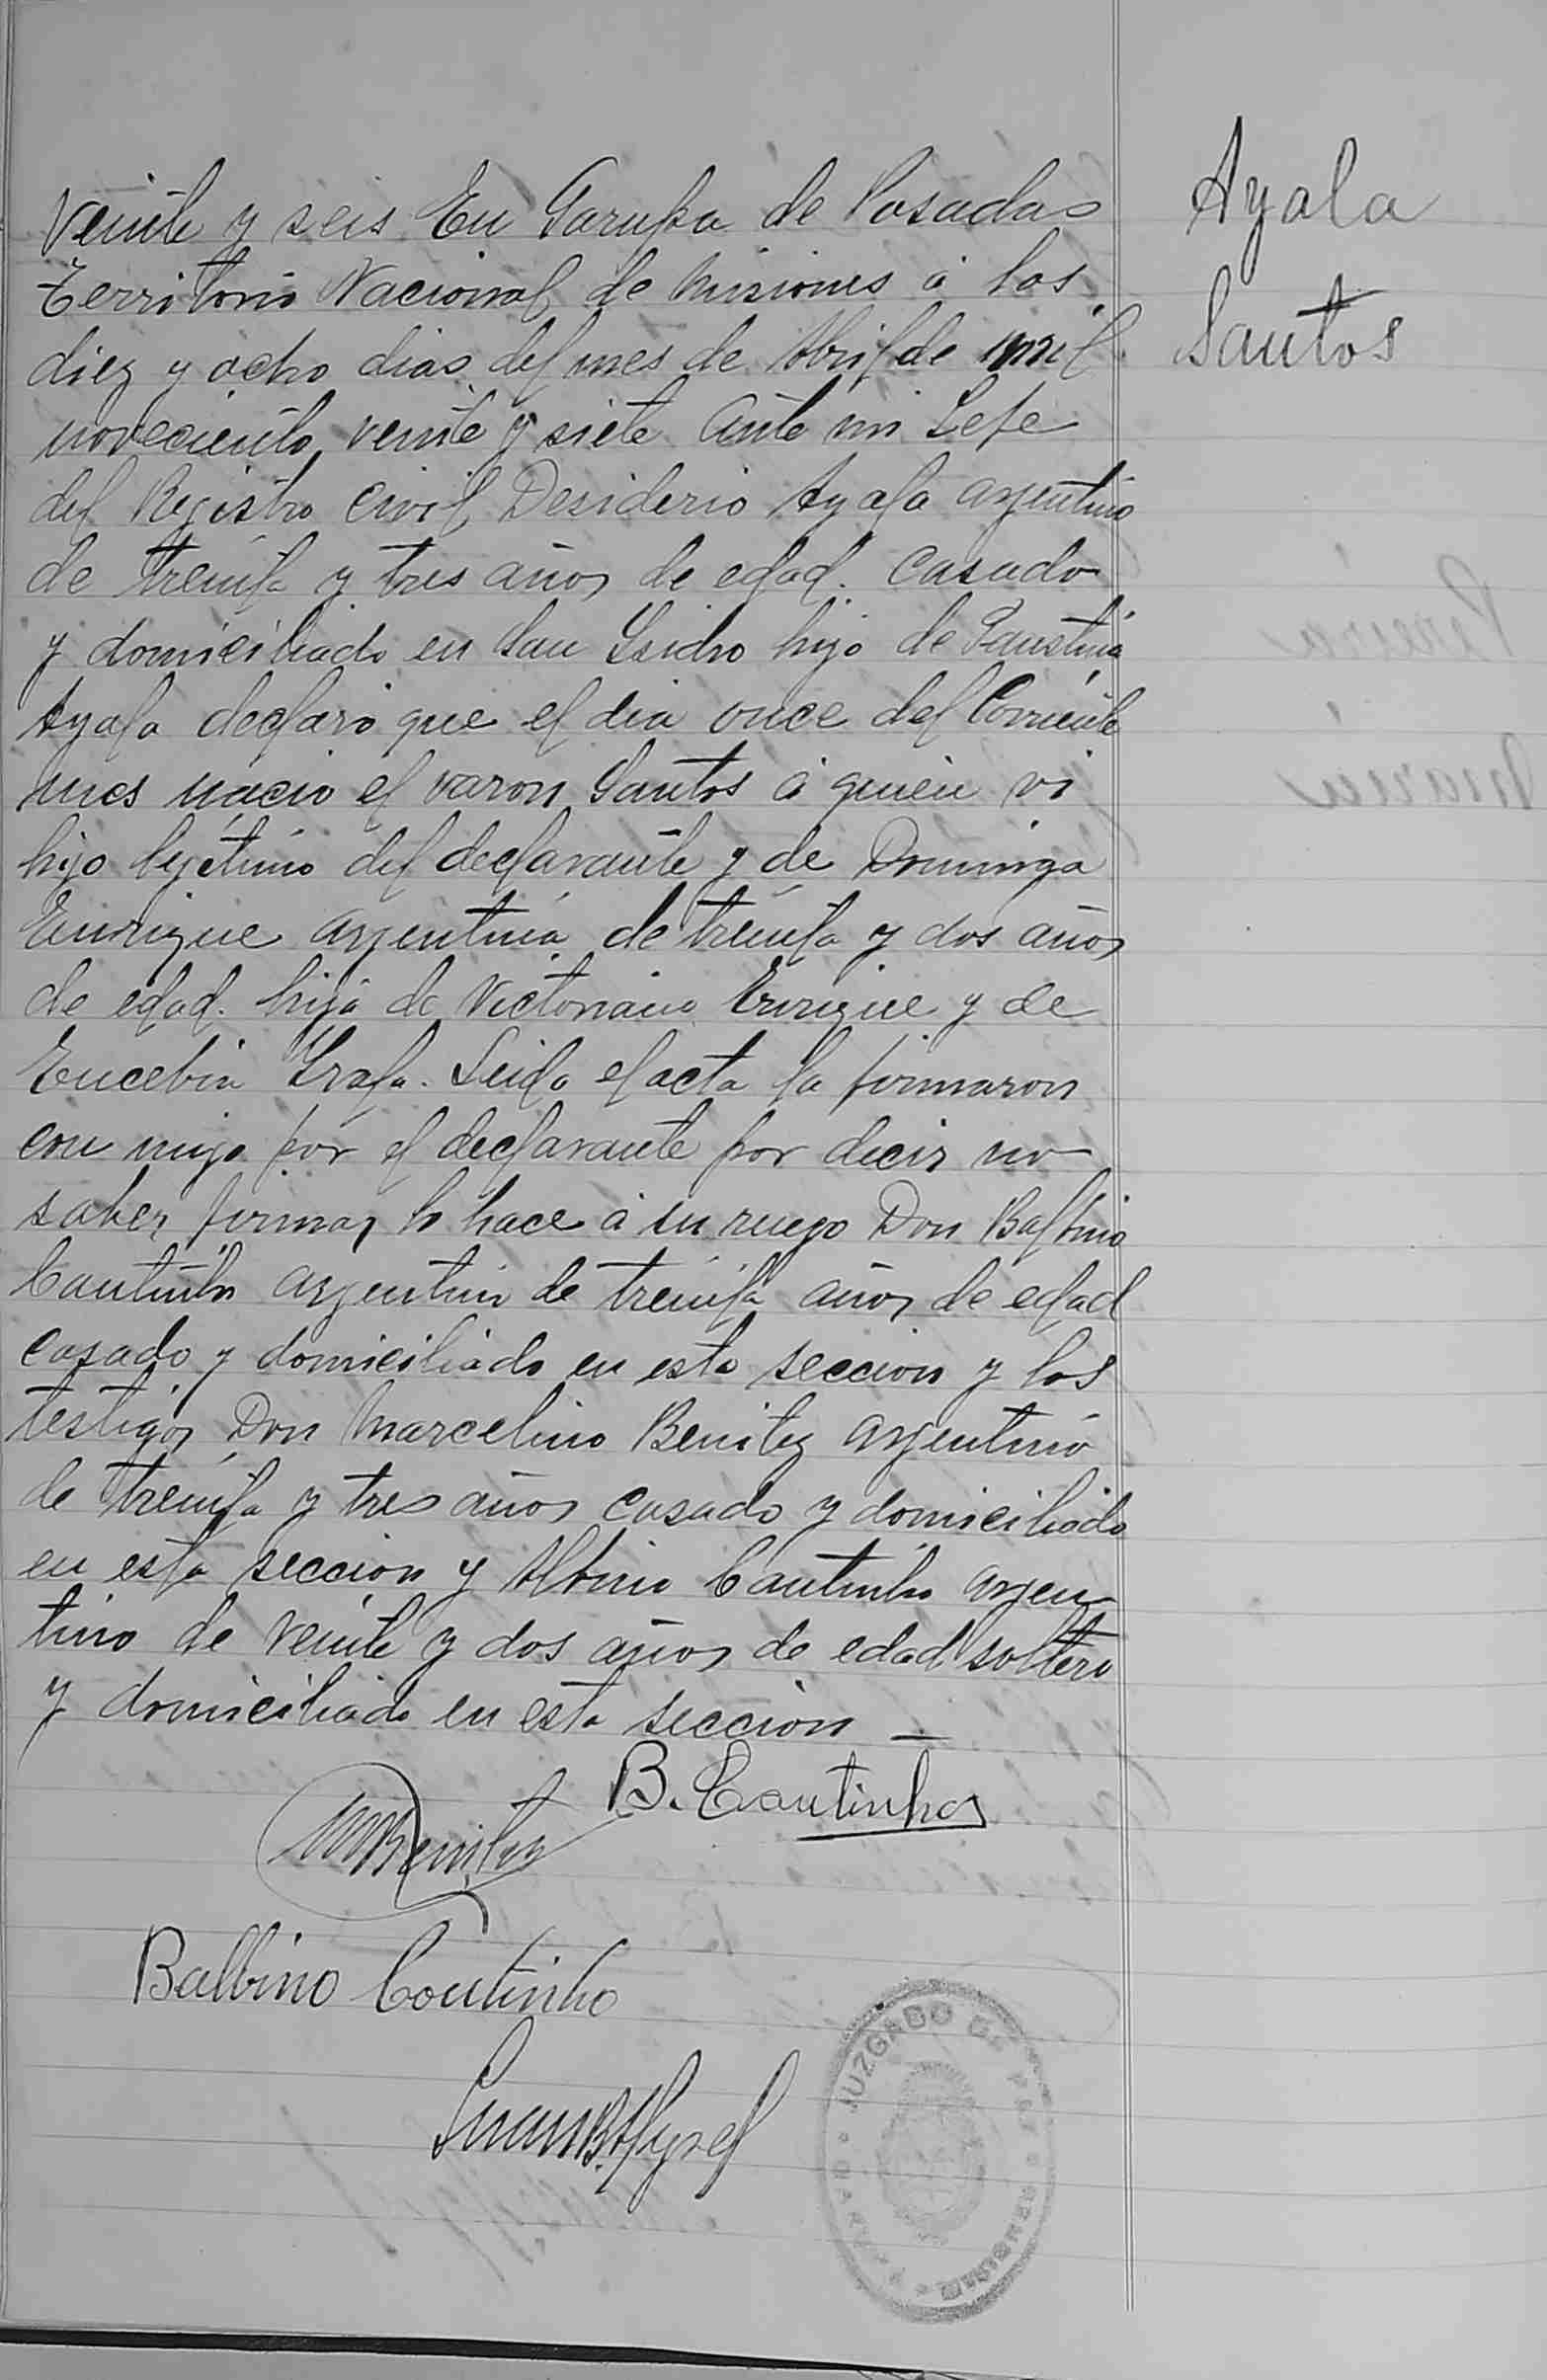 Ayala
Santos
Veinte y seis En Garupa de Posadas
Territorio Nacional de Misiones á los
diez y ocho dias del mes de Abril de mil
novecientos veinte y siete Ante mi Jefe
del Registro Civil Desiderio Ayala argentino
de treinta y tres años de edad. casado
y domiciliado en San Ysidro hijo de Faustina
Ayala declaró que el dia once del Corriente
mes nacio el varon Santos á quien vi
hijo lejitimo del declarante y de Dominga
Enrique argentina de treinta y dos años
de edad. hija de Victoriano Enrique y de
Encebia Yrala. Leida el acta la firmaron
con migo por el declarante por decir no
saber firmar lo hace á su ruego Don Balbino
Cautinho argentino de treinta años de edad
casado y domiciliado en esta seccion y los
testigos Don Marcelino Benitez argentino
de treinta y tres años casado y domiciliado
en esta seccion y Albino Cautinho argen
tino de veinte y dos años de edad soltero
y domiciliado en esta seccion —
B. Cautinho
MBenitez
Balbino Coutinho
JUZGADO DE PAZ